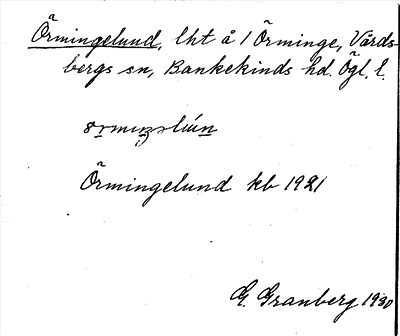 Örmingelund, lht å 1 Örminge, Vårds-
bergs sn, Bankekinds hd. Ögl. l.
Örmingelund kb 1921
G. Granberg 1930